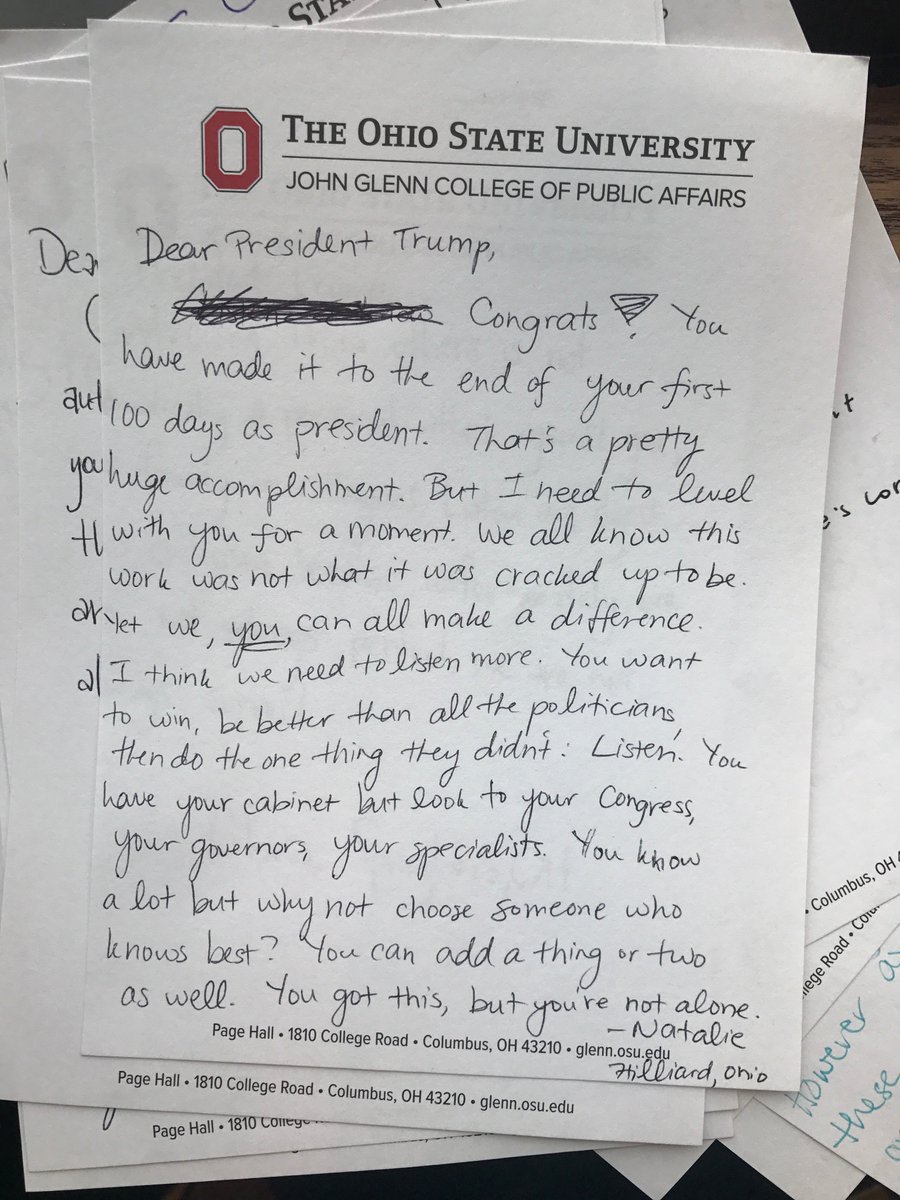 STA
O
THE OHIO STATE UNIVERSITY
JOHN GLENN COLLEGE OF PUBLIC AFFAIRS
Dear President Trump,
Congrats! You
have made it to the end of your first
100 days as president. That's a pretty
huge accomplishment. But I need to level
with you for a moment. We all know this
work was not what it was cracked up to be.
Yet we, you, can all make a difference.
I think we need to listen more. You want
to win, be better than all the politicians,
then do the one thing they didn't: Listen. You
have your cabinet but look to your Congress,
your governors, your specialists. You know
a lot but why not choose someone who
knows best? You can add a thing or two
as well. You got this, but you're not alone.
-Natalie
Page Hall • 1810 College Road • Columbus, OH 43210 • glenn.osu.edu
Hilliard, Ohio
Dea
you
Page Hall • 1810 College Road • Columbus, OH 43210 • glenn.osu.edu
Page Hall • 1810 College
• Columbus, OH 4
llege Road • Colu
However
these